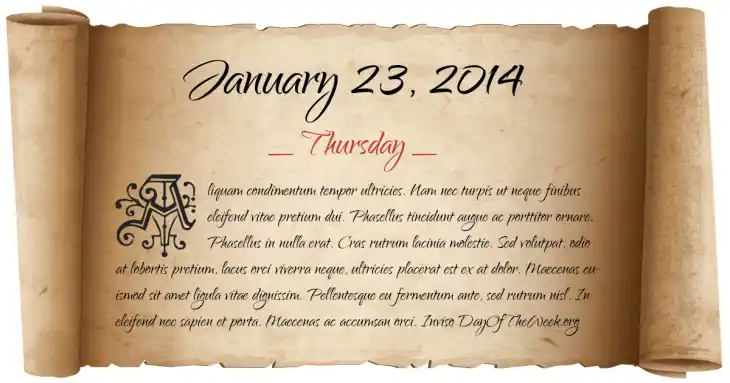 January 23, 2014
Thursday
Aliquam condimentum tempor ultricies. Nam nec turpis ut neque finibus
eleifend vitae pretium dui. Phasellus tincidunt augue ac porttitor ornare.
Phasellus in nulla erat. Cras rutrum lacinia molestie. Sed volutpat, odio
at lobortis pretium, lacus orci viverra neque, ultricies placerat est ex at dolor. Maecenas eu-
ismod sit amet ligula vitae dignissim. Pellentesque eu fermentum ante, sed rutrum nisl. In
eleifend nec sapien et porta. Maecenas ac accumsan orci. Inviso DayOfTheWeek.org